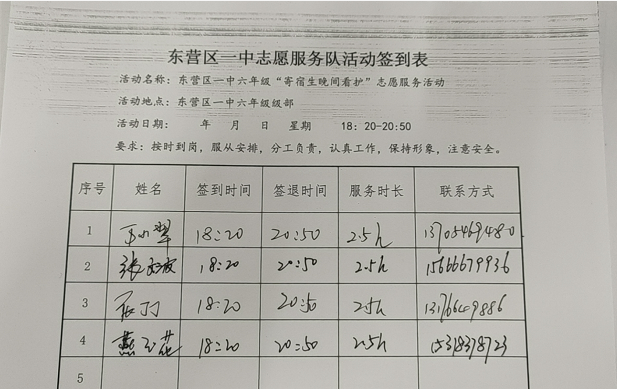 东营区一中志愿服务队活动签到表
活动名称：东营区一中六年级“寄宿生晚间看护”志愿服务活动
活动地点：东营区一中六年级级部
活动日期： 年 月 日 星期 18：20-20:50
要求：按时到岗，服从安排，分工负责，认真工作，保持形象，注意安全。
序号 姓名 签到时间 签退时间 服务时长 联系方式
1 18:20 20:50 2.5h 13705469480
2 张 18:20 20:50 2.5h 15666679936
3 18:20 20:50 2.5h
4 燕 花 18:20 20:50 2.5h 15318378723
5